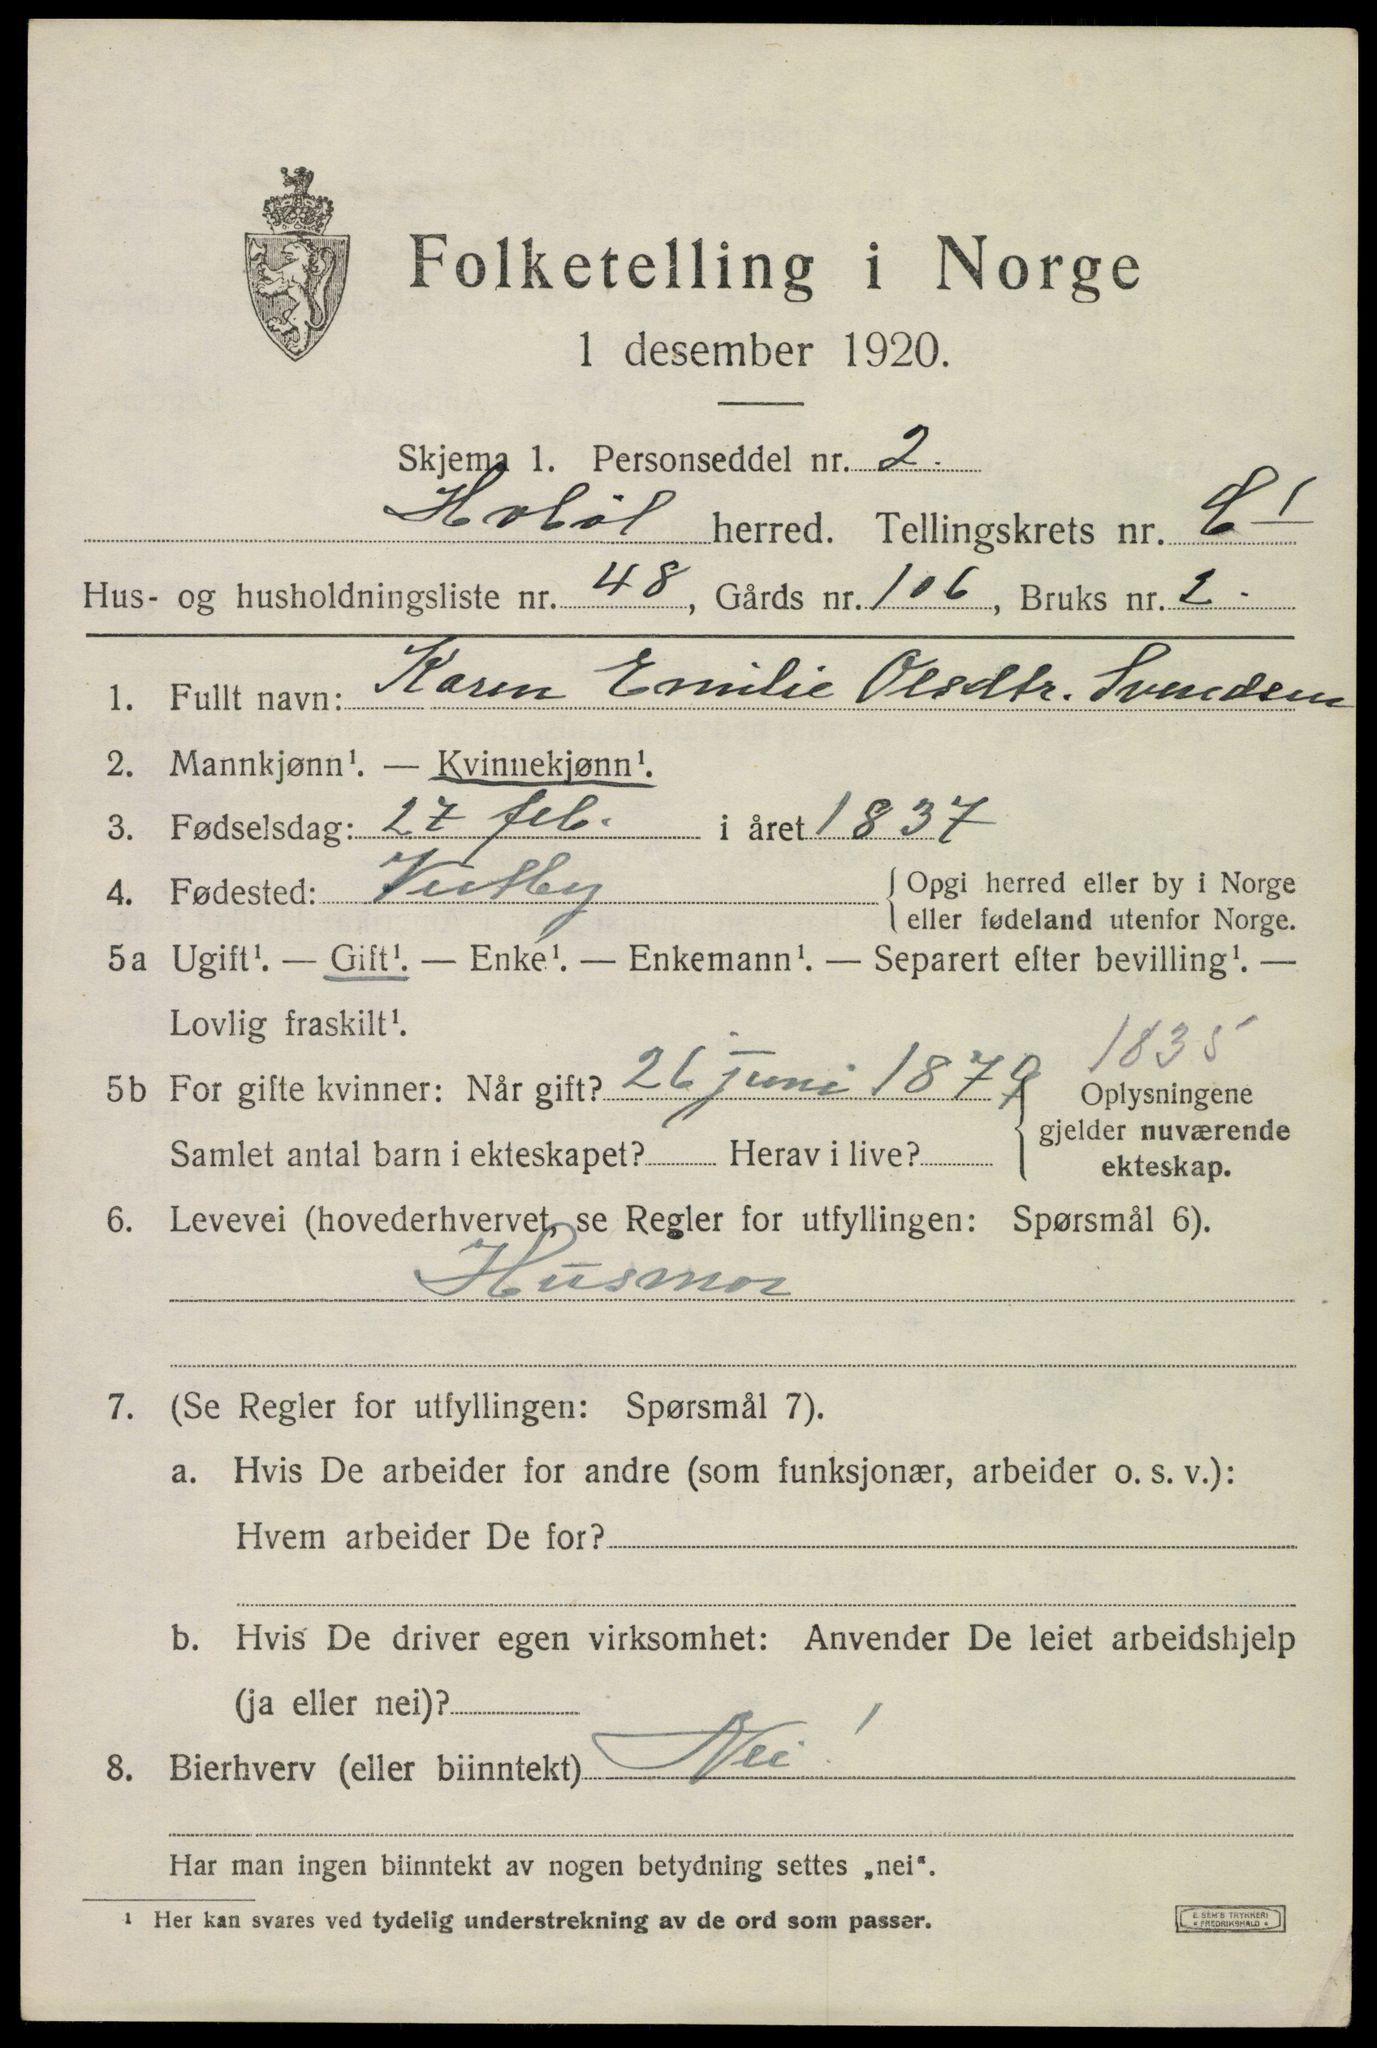 Folketelling i Norge
1 desember 1920.
Skjema 1. Personseddel nr. 2.
Hobøl herred. Tellingskrets nr. 6 1
Hus- og husholdningsliste nr. 48, Gårds nr. 106, Bruks nr. 2.
1. Fullt navn: Karen Emilie Olsdtr. Svendsen
2. Mannkjønn¹. — Kvinnekjønn¹.
3. Fødselsdag: 27 feb. i året 1837
4. Fødested: Vestby { Opgi herred eller by i Norge
eller fødeland utenfor Norge.
5a Ugift¹. — Gift¹. — Enke¹. — Enkemann¹. — Separert efter bevilling¹. —
Lovlig fraskilt¹.
1835
5b For gifte kvinner: Når gift? 26 juni 1879 { Oplysningene
gjelder nuværende
Samlet antal barn i ekteskapet? Herav i live?
ekteskap.
6. Levevei (hovederhvervet, se Regler for utfyllingen: Spørsmål 6).
Husmor
7. (Se Regler for utfyllingen: Spørsmål 7).
a. Hvis De arbeider for andre (som funksjonær, arbeider o. s. v.):
Hvem arbeider De for?
b. Hvis De driver egen virksomhet: Anvender De leiet arbeidshjelp
(ja eller nei)?
8. Bierhverv (eller biinntekt) Nei!
Har man ingen biinntekt av nogen betydning settes „nei“.
¹ Her kan svares ved tydelig understrekning av de ord som passer.
E. SEM'S TRYKKERI
FREDRIKSHALD